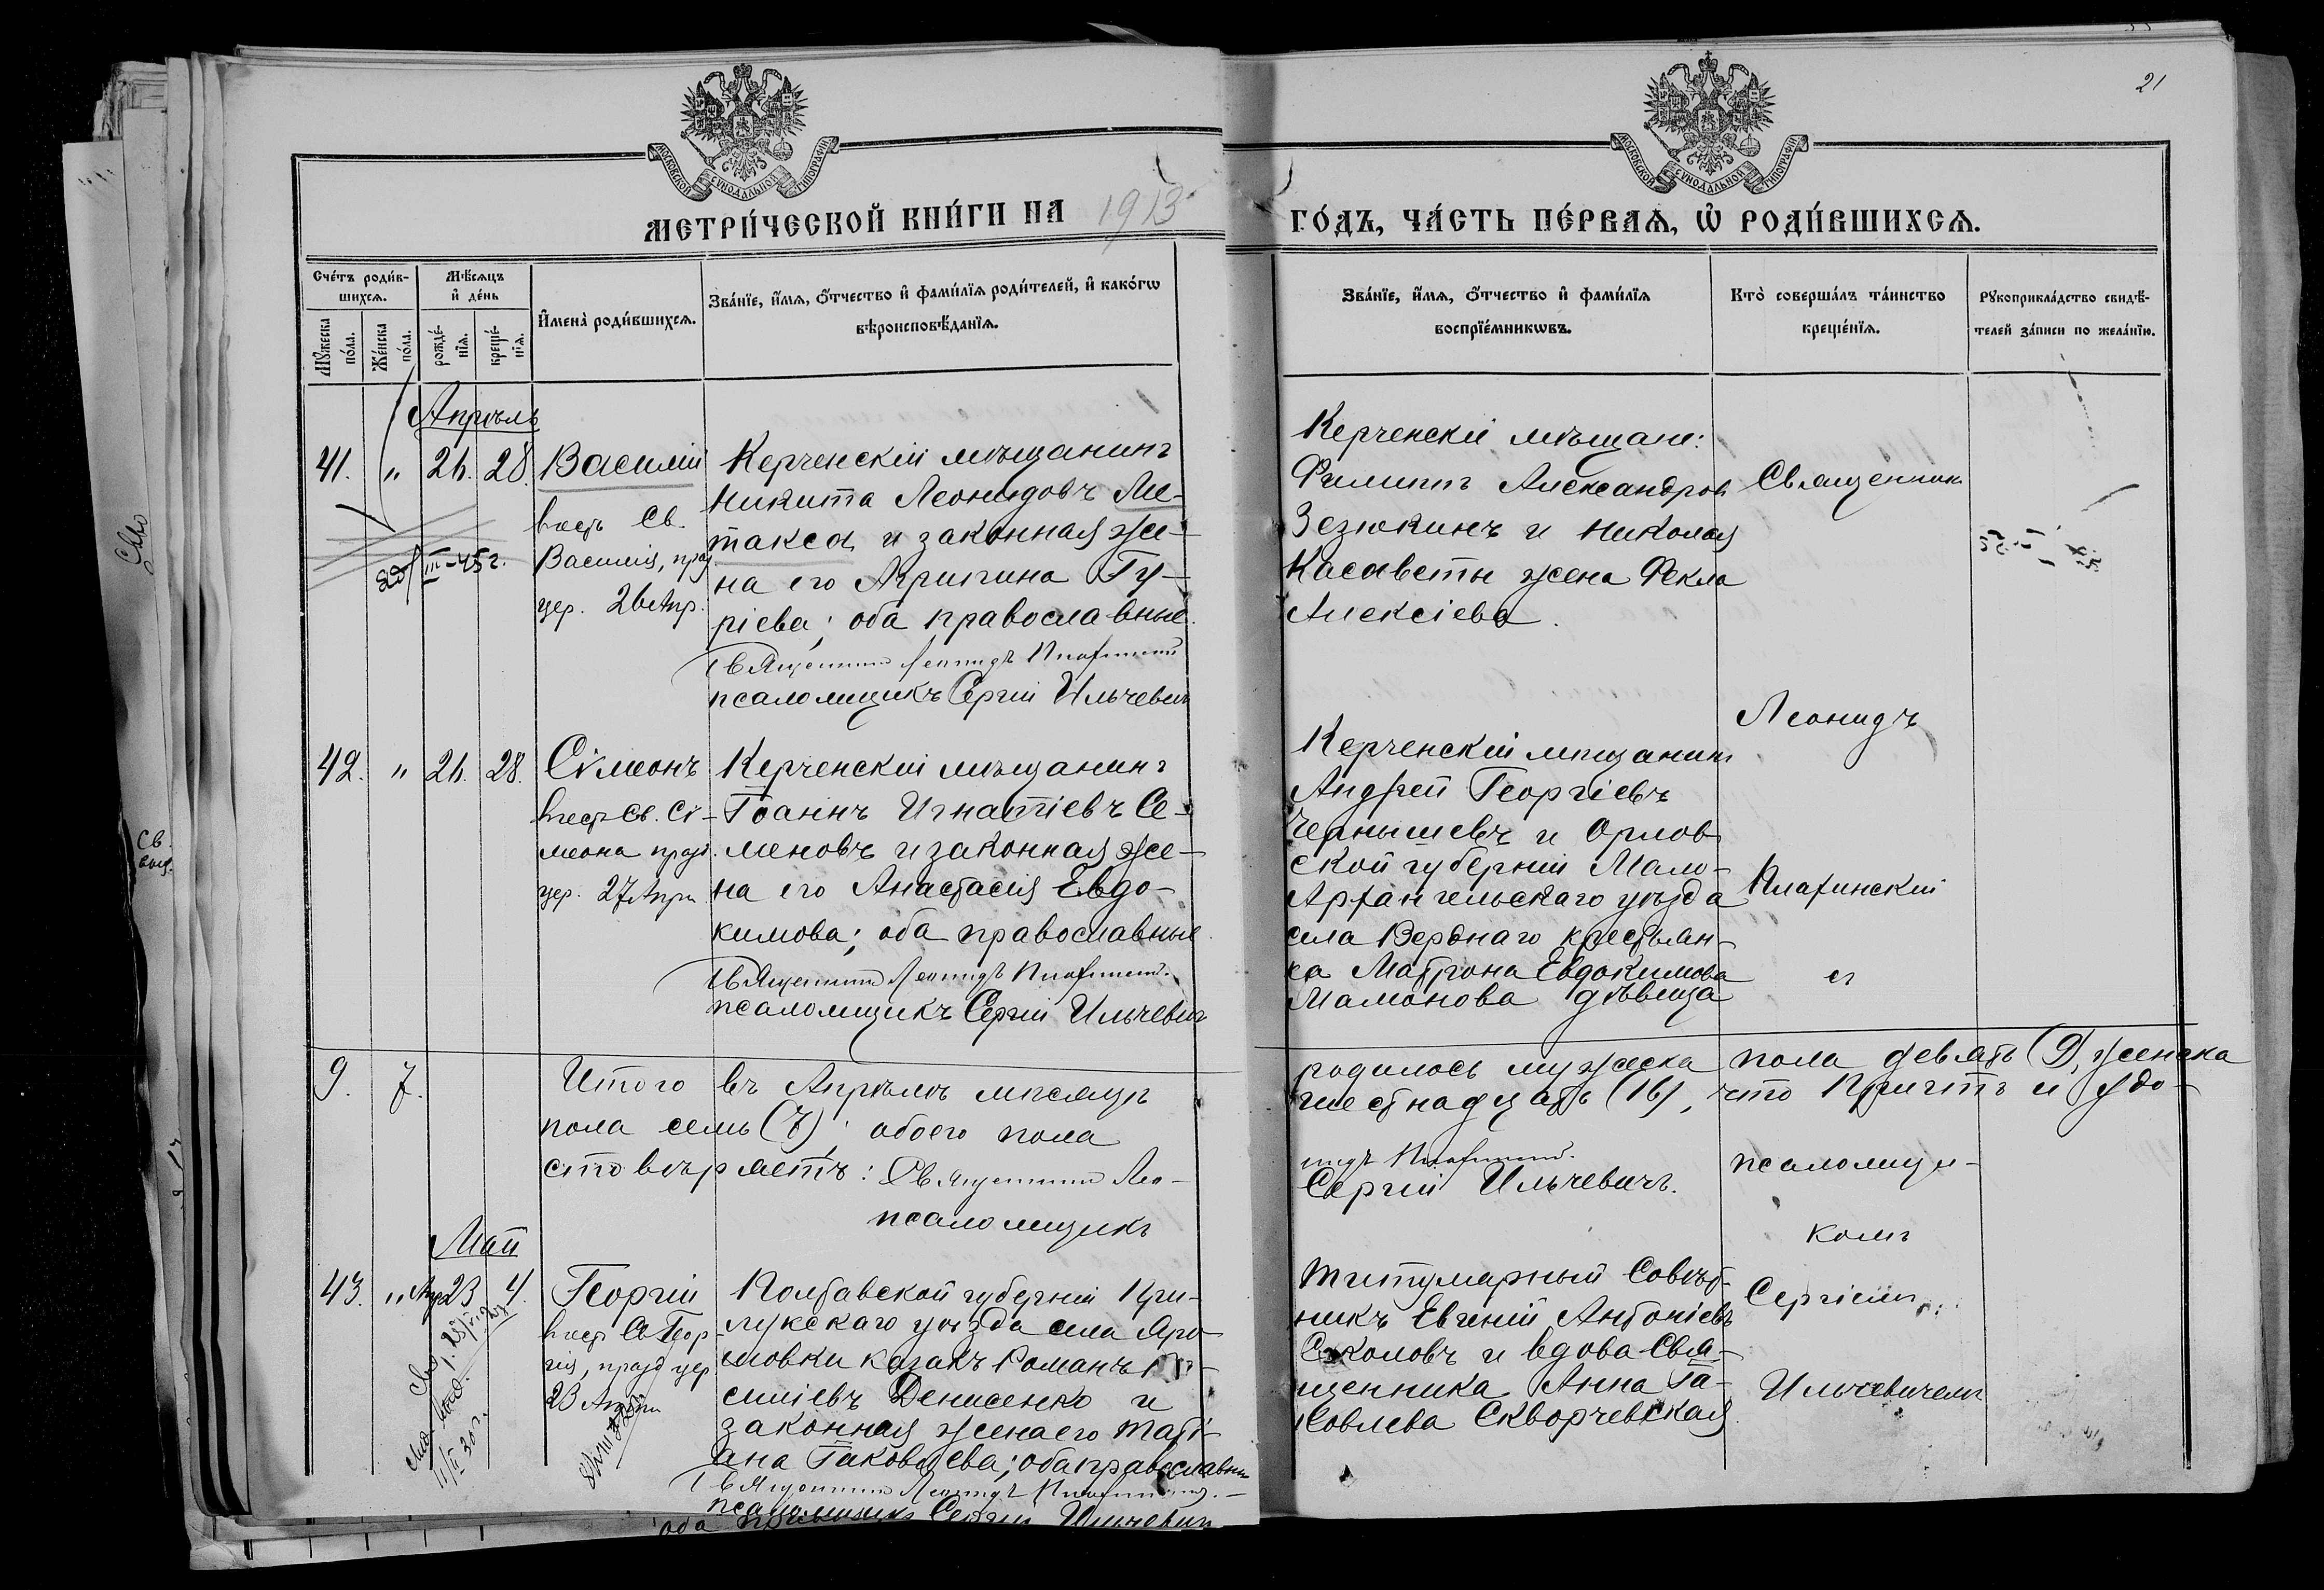 21
МОСКОВСКОЙ СѴНОДАЛЬНОЙ ТИПОГРАФІИ
МОСКОВСКОЙ СѴНОДАЛЬНОЙ ТИПОГРАФІИ
МЕТРИ́ЧЕСКОЙ КНИ́ГИ НА 1913 ГО́ДЪ, ЧА́СТЬ ПЕ́РВАѦ, Ѡ҆ РОДИ́ВШИХСѦ.
Сче́тъ роди́в-
шихсѧ.
Мꙋ́жеска
по́ла.
Же́нска
по́ла.
Мѣ́сѧцъ
и҆ де́нь
рожде́-
нїѧ.
креще́-
нїѧ.
И҆мена̀ роди́вшихсѧ.
Зва́нїе, и҆́мѧ, ѻ҆́тчество и҆ фами́лїѧ роди́телей, и҆ како́гѡ
вѣроисповѣ́данїѧ.
Зва́нїе, и҆́мѧ, ѻ҆́тчество и҆ фами́лїѧ
воспрїе́мникѡвъ.
Кто̀ соверша́лъ та́инство
креще́нїѧ.
Рꙋкоприкла́дство свидѣ́-
телей за́писи по жела́нїю.
Апрѣль
41. " 26. 28.
Василій
въ честь Св.
Василія, праз.
цер. 26 Апр.
III-45 г.
Керченскій мѣщанинъ
Никита Леонидовъ Ме-
такса и законная же-
на его Агрипина Гу-
ріева; оба православные.
Священникъ Леонидъ Плафинскій
псаломщикъ Сергій Ильчевичъ
Керченскіе мѣщане:
Филиппъ Александровъ
Зезюкинъ и Николая
Касаветы жена Фекла
Алексіева.
Священникъ
Леонидъ
Плафинскій
съ
псаломщи-
комъ
Сергіемъ
Ильчевичемъ
42. " 26. 28.
Сѵмеонъ
въ честь Св. Сѵ-
меона празд.
цер. 27 Апрѣ
Керченскій мѣщанинъ
Іоаннъ Игнатіевъ Се-
меновъ и законная же-
на его Анастасія Евдо-
кимова; оба православные.
Священникъ Леонидъ Плафинскій.
псаломщикъ Сергій Ильчевичъ
Керченскій мѣщанинъ
Андрей Георгіевъ
Чернышевъ и Орлов-
ской губерніи Мало-
Архангельскаго уѣзда
села Верхняго крестьян-
ка Матрона Евдокимова
Мамонова дѣвица
9. 7.
Итого въ Апрѣлѣ мѣсяцѣ родилось мужеска пола девять (9), женска
пола семь (7); обоего пола шестнадцать (16), что Причтъ и удо-
стовѣряетъ: Священникъ Леонидъ Плафинскій.
псаломщикъ Сергій Ильчевичъ.
Май
43. " Апр 23 4.
Георгій
въ честь Св. Геор-
гія, празд цер
23 Апрѣ
Полтавской губерніи При-
лукскаго уѣзда села Яро-
шовки казакъ Романъ
Денисенко и
законная жена его Таті-
ана Іаковлева; оба православны
Священникъ Леонидъ Плафинскій.
псаломщикъ Сергій Ильчевичъ
Титулярный Совѣт-
никъ Евгеній Антоніевъ
Соколовъ и вдова Свя-
щенника Анна Іа-
ковлева Скворчевская.